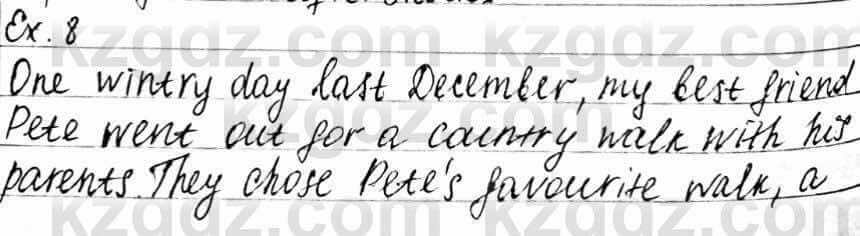 Ex. 8
One wintry day last December, my best friend
Pete went out for a country walk with his
parents. They chose Pete's favourite walk, a
kzgdz.com kzgdz.com
kzgdz.com
kzgdz.com kzgdz.com